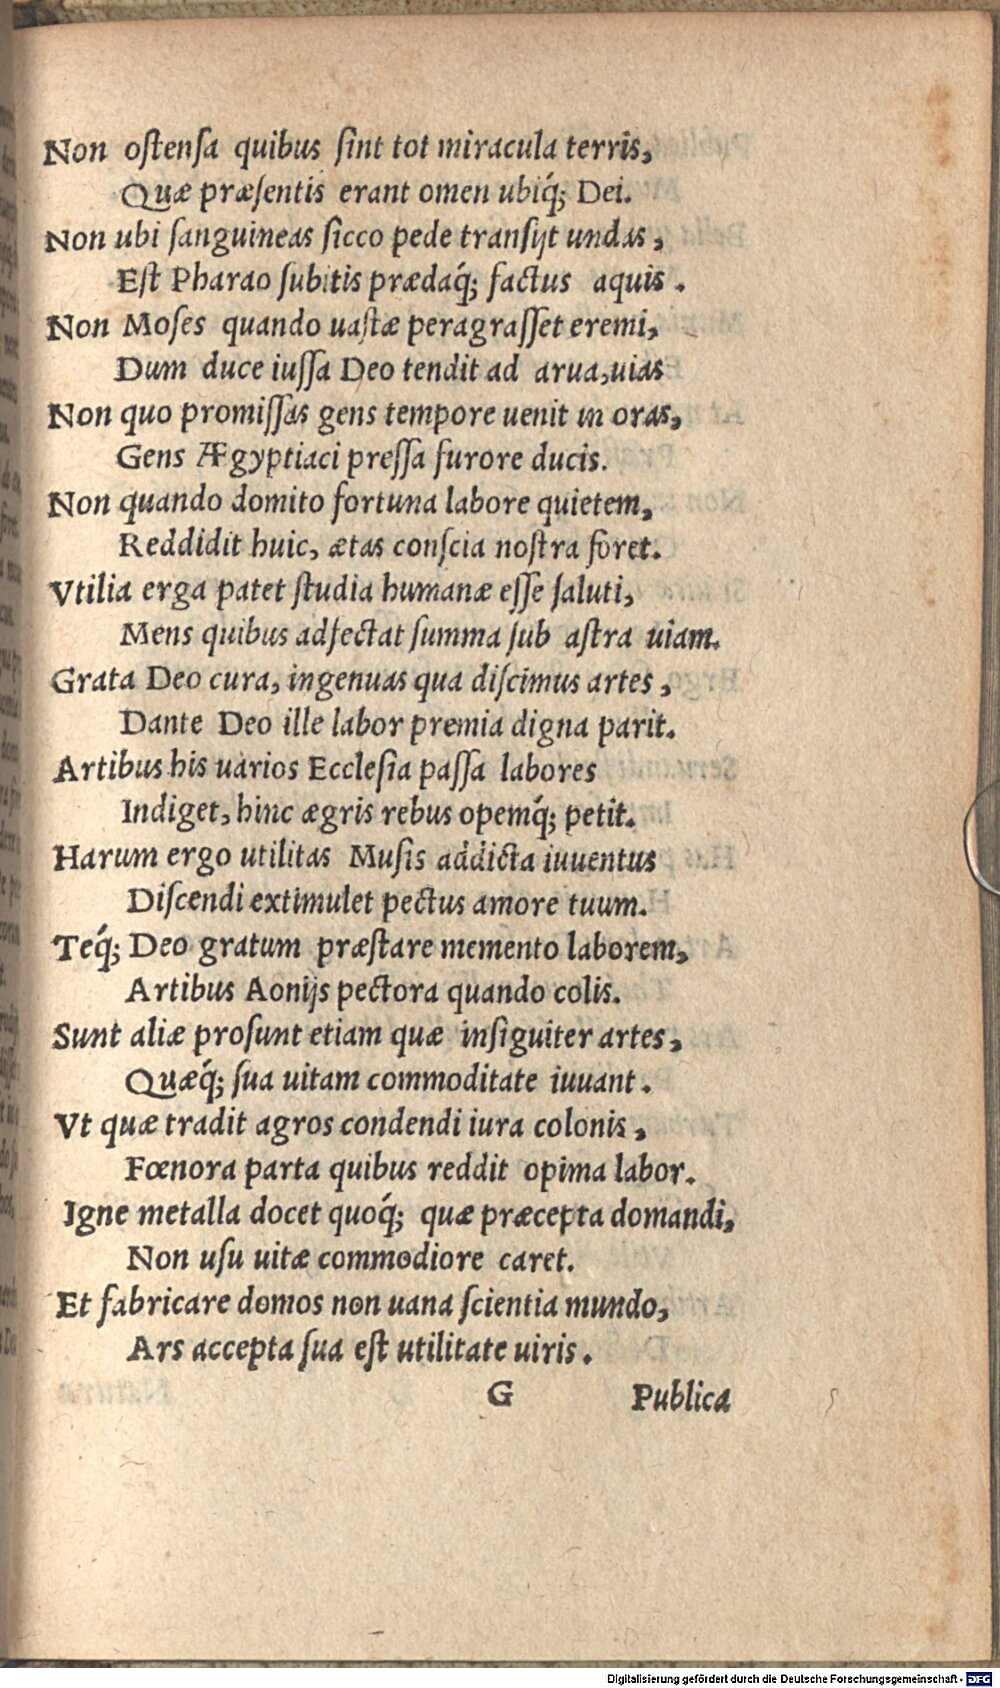 Non ostensa quibus sint tot miracula terris,
Quæ præsentis erant omen ubiq́; Dei.
Non ubi sanguineas sicco pede transijt undas,
Est Pharao subitis prædaq́; factus aquis.
Non Moses quando uastæ peragrasset eremi,
Dum duce iussa Deo tendit ad arua, uias
Non quo promissas gens tempore uenit in oras,
Gens Ægyptiaci pressa furore ducis.
Non quando domito fortuna labore quietem,
Reddidit huic, ætas conscia nostra foret.
Vtilia erga patet studia humanæ esse saluti,
Mens quibus adfectat summa sub astra uiam.
Grata Deo cura, ingenuas qua discimus artes,
Dante Deo ille labor premia digna parit.
Artibus his uarios Ecclesia passa labores
Indiget, hinc ægris rebus opemq́; petit.
Harum ergo utilitas Musis addicta iuuentus
Discendi extimulet pectus amore tuum.
Teq́; Deo gratum præstare memento laborem,
Artibus Aonijs pectora quando colis.
Sunt aliæ prosunt etiam quæ insiguiter artes,
Quæq́; sua uitam commoditate iuuant.
Vt quæ tradit agros condendi iura colonis,
Fœnora parta quibus reddit opima labor.
Igne metalla docet quoq́; quæ præcepta domandi,
Non usu uitæ commodiore caret.
Et fabricare domos non uana scientia mundo,
Ars accepta sua est utilitate uiris.
G Publica
Digitalisierung gefördert durch die Deutsche Forschungsgemeinschaft - DFG